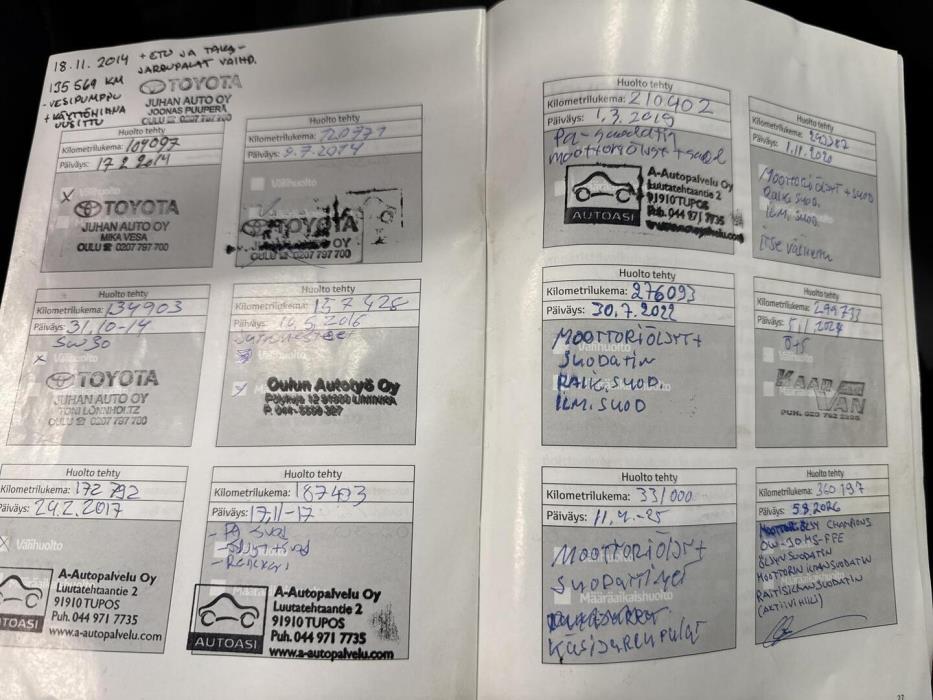 18.11.2014 + ETU JA TAKA-
JARRUPALAT VAIHD.
135 569 KM
- VESIPUMPPU
+ KÄYTTÖHIHNA
UUSITTU
TOYOTA
JUHAN AUTO OY
JOONAS PUUPERÄ
OULU ☎ 0207 797 700
Huolto tehty
Kilometrilukema: 109097
Päiväys: 17.2.2014
x Välihuolto
TOYOTA
JUHAN AUTO OY
MIKA VESA
OULU ☎ 0207 797 700
Huolto tehty
Kilometrilukema: 120971
Päiväys: 9.7.2014
Välihuolto
TOYOTA
OY
OULU ☎ 0207 797 700
Huolto tehty
Kilometrilukema: 134903
Päiväys: 31.10-14
5W30
x
TOYOTA
JUHAN AUTO OY
TONI LÖNNHOLTZ
OULU ☎ 0207 797 700
Huolto tehty
Kilometrilukema: 157428
Päiväys: 16.5.2016
Oulun Autotyö Oy
Pölykuja 12 91900 LIMINKA
P. 044-5550 327
Huolto tehty
Kilometrilukema: 172 792
Päiväys: 24.2.2017
x Välihuolto
AUTOASI
A-Autopalvelu Oy
Luutatehtaantie 2
91910 TUPOS
Puh. 044 971 7735
www.a-autopalvelu.com
Huolto tehty
Kilometrilukema: 187433
Päiväys: 17.11-17
- PA SUOD
- öljyt + suod
Määrä
AUTOASI
A-Autopalvelu Oy
Luutatehtaantie 2
91910 TUPOS
Puh. 044 971 7735
www.a-autopalvelu.com
Huolto tehty
Kilometrilukema: 210402
Päiväys: 1.3.2019
Pa-suodatin
moottoriöljyt + suod
AUTOASI
A-Autopalvelu Oy
Luutatehtaantie 2
91910 TUPOS
Puh. 044 971 7735
www.a-autopalvelu.com
Huolto tehty
Kilometrilukema:
Päiväys: 1.11.2020
MOOTTORIÖLJYT + SUOD
RAIK. SUOD.
ILM. SUOD.
Huolto tehty
Kilometrilukema: 276093
Päiväys: 30.7.2022
MOOTTORIÖLJYT +
SUODATIN
RAIK. SUOD.
ILM. SUOD
Huolto tehty
Kilometrilukema: 299733
Päiväys: 5.1.2024
Ö+S
Välihuolto
KAAR
VAN
Huolto tehty
Kilometrilukema: 331000
Päiväys: 11.4.-25
MOOTTORIÖLJYT +
SUODATTIMET
Määräaikaishuolto
KÄSIJARRUPALAT
Huolto tehty
Kilometrilukema: 360 197
Päiväys: 5.8.2026
MOOTTORIÖLJY CHAMPION
0W-30 MS-FFE
ÖLJYNSUODATIN
MOOTTORIN ILMANSUODATIN
RAITISILMANSUODATIN
(AKTIIVIHIILI)
27